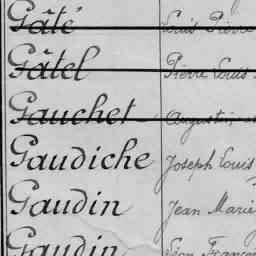 Gâté Louis Pierre
Gâtel Pierre Louis
Gauchet Augustin
Gaudiche Joseph Louis
Gaudin Jean Marie
Gaudin Léon François